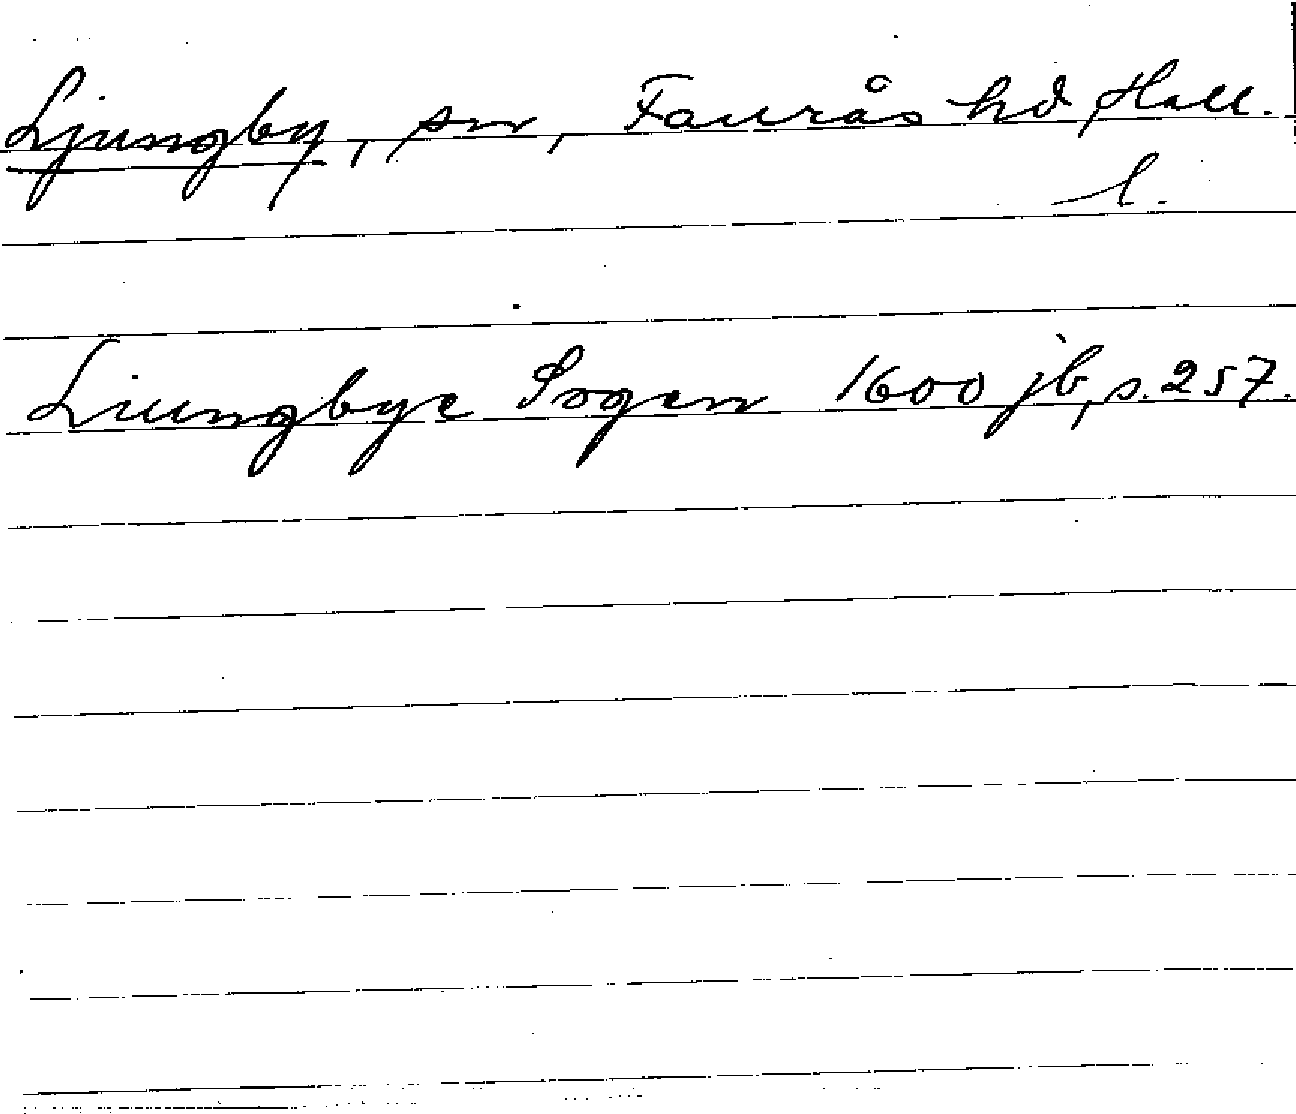 Ljungby, sn, Faurås hd, Hall.
l.
Liungbye Sogen 1600 jb, s. 257.